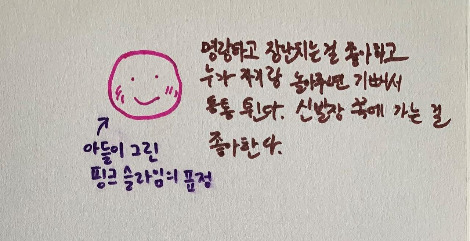 명랑하고 장난치는걸 좋아하고
누가 자기랑 놀아주면 기뻐서
통통 튄다. 신발장 쪽에 가는 걸
좋아한다.
아들이 그린
핑크 슬라임의 표정